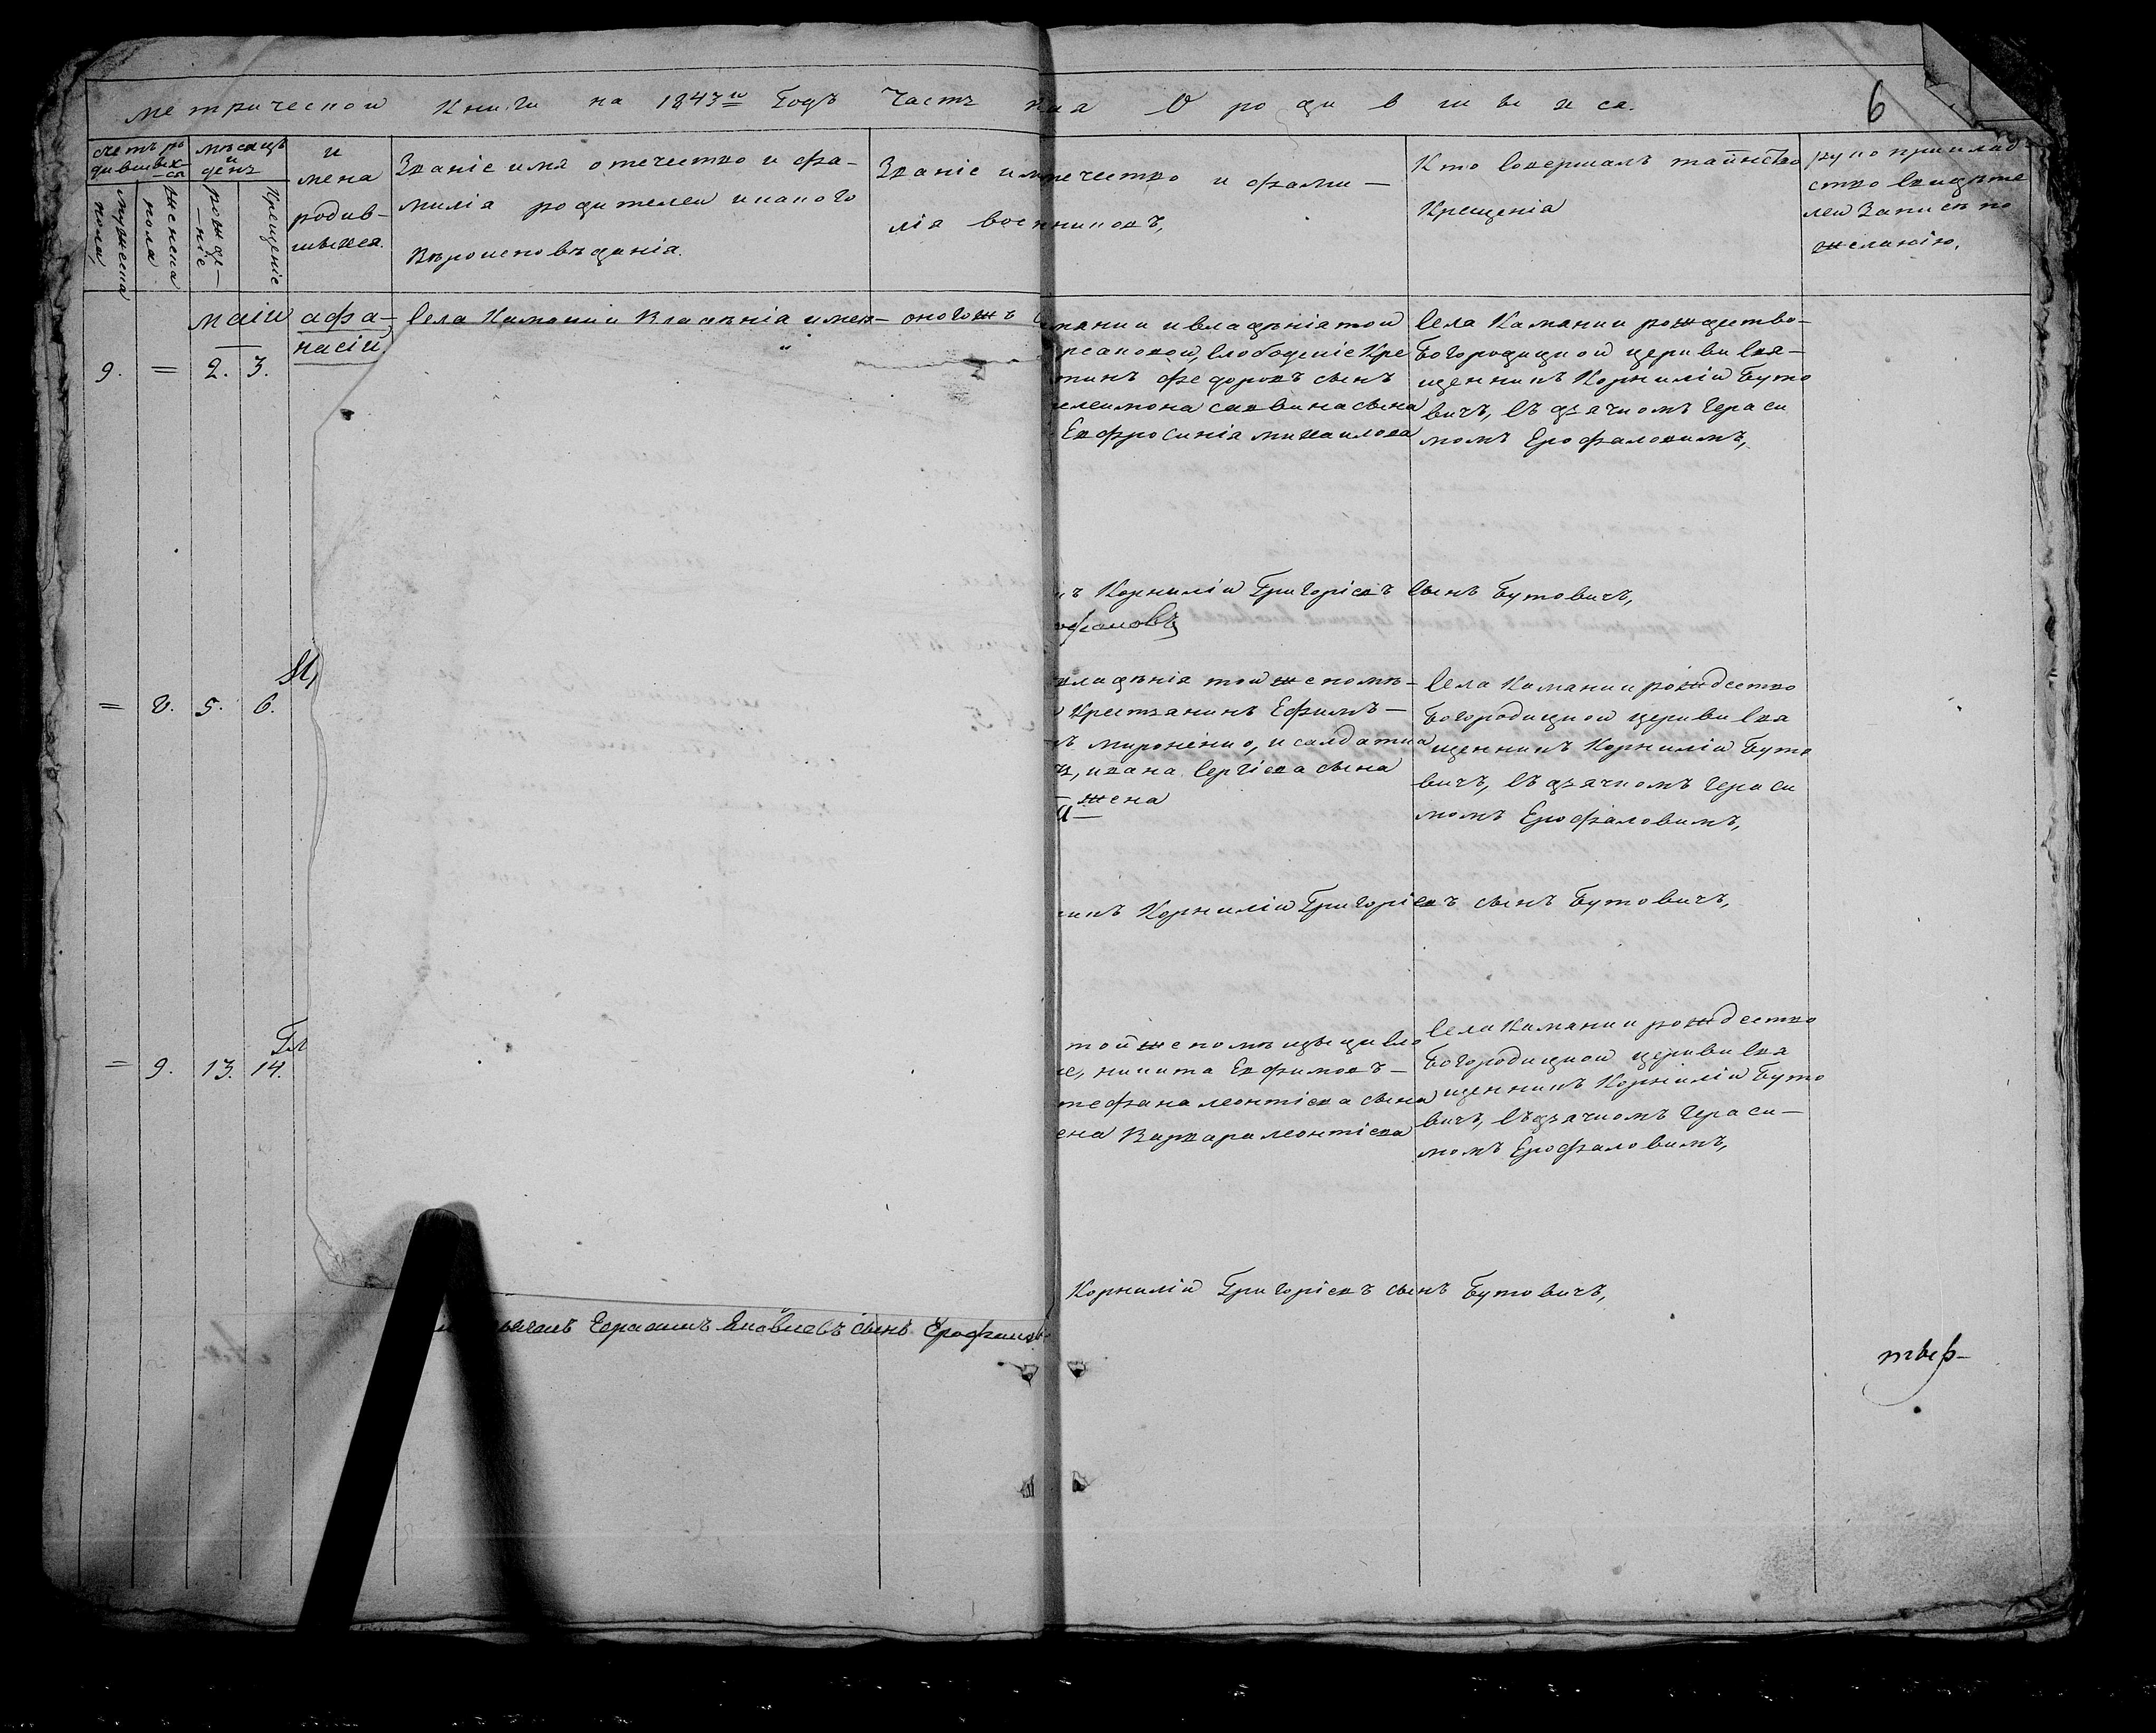 метрической книги на 1843й Годъ Часть О родившыхся.
6
счетъ ро
дившех
ся
мѣсяцъ
и
день
и
мена
родив-
шыхся.
Званіе имя отечество и фа-
миліа родителей и какого
Вѣроисповѣданіа.
и фами-
ліа
Кто Совершалъ таинство
Крещеніа
рукоприклад
ство Свидѣте
лей Записъ по
желанію,
мужеска
пола,
женска
пола
рожде-
ніе
Крещеніе
маій
афа-
насій
9. = 2. 3.
Села Каманки Владѣніа
оногожъ
манки и владѣніа той
Слободеніе Кре
нинъ Федоровъ сынъ
Саввина сына
Евфросиніа михаилова
Села Каманки рождество-
Богородицкой церкви Свя-
щенникъ Корнилій Буто
вичъ, съ дьячкомъ Гераси
момъ Ерофаловимъ,
Корнилій Григоріевъ Сынъ Бутовичъ,
офаловъ
= 8. 5. 6.
владѣніа той же помѣ-
Крестьянинъ Ефимъ-
мироненко, и салдатка
ивана Сергіева сына
жена
Села Каманки рождество
Богородицкой церкви Свя
щенникъ Корнилій Буто
вичъ, съ дьячкомъ Гераси
момъ Ерофаловимъ,
никъ Корнилій Григоріевъ сынъ Бутовичъ,
= 9. 13. 14.
той же помѣщици
никита Евфимовъ-
тефана леонтіева сына
ена Варвара леонтіева
Села Каманки рождество
Богородицкой церкви Свя
щенникъ Корнилій Буто
вичъ, съ дьячкомъ Гераси-
момъ Ерофаловимъ,
Корнилій Григоріевъ сынъ Бутовичъ,
Герасимъ Яковлевъ сынъ Ерофаловъ